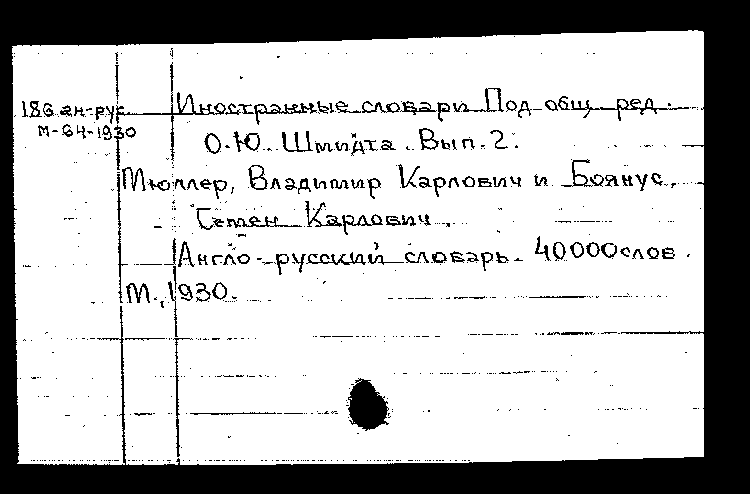 18б ан-рус Иностранные словари Под общ ред.
М-64-1930 О.Ю. Шмидта. Вып.2.
Мюллер, Владимир Карлович и Боянус,
Семен Карлович.
Англо-русский словарь. 40000слов.
М., 1930.